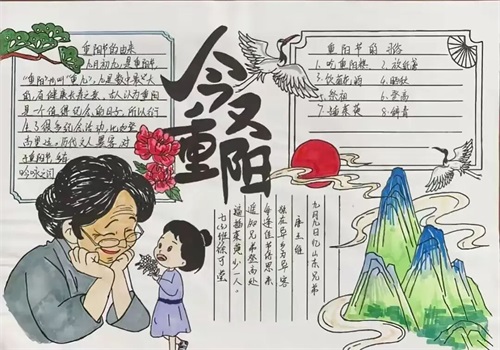 重阳节的由来
九月初九,是重阳节,
"重阳"也叫"重九",九是数中最大
的,有健康长寿之意,古人认为重阳
是一个值得庆贺的日子,所以
了很多庆贺活动,比如登
高望远。历代文人墨客,对
于重阳节,结
吟咏之词
今又重阳
重阳节的习俗
1.吃重阳糕 2.放纸鸢
3.饮菊花酒 4.晒秋
5.祭祖 6.登高
7.插茱萸 8.辞青
九月九日忆山东兄弟
唐 王维
独在异乡为异客
每逢佳节倍思亲
遥知兄弟登高处
遍插茱萸少一人。